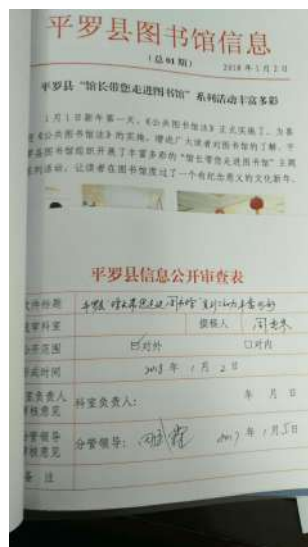 平罗县图书馆信息
(总01期) 2018年1月2日
平罗县“馆长带您走进图书馆”系列活动丰富多彩
1月1日新年第一天,《公共图书馆法》正式实施了。为喜
《公共图书馆法》的实施,增进广大读者对图书馆的了解,平
县图书馆组织开展了丰富多彩的“馆长带您走进图书馆”主题
系列活动,让读者在图书馆度过了一个有纪念意义的文化新年。
平罗县信息公开审查表
文件标题 平罗县“馆长带您走进图书馆”系列活动丰富多彩
科室 撰稿人
公开范围 ☑对外 ☐对内
形成时间 2018年1月2日
室负责人 科室负责人: 年 月 日
审核意见
分管领导 分管领导: 2017年1月5日
审核意见
备 注